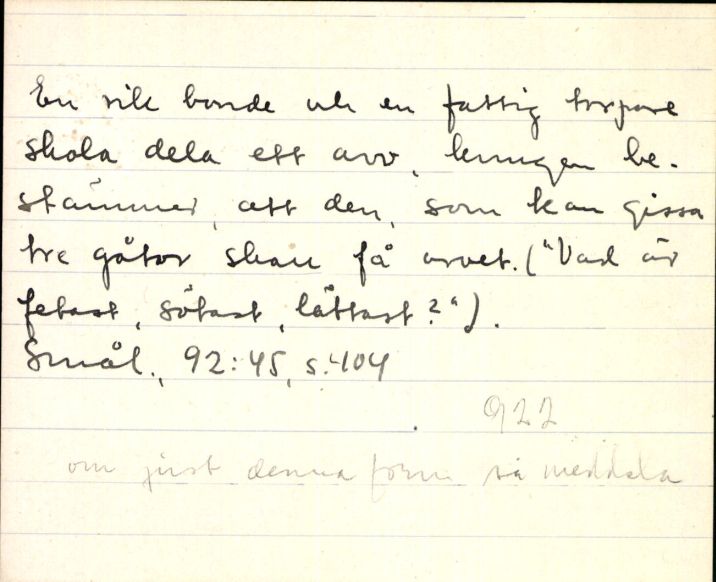 En rik bonde och en fattig torpare
skola dela ett arv, kungen be-
stämmer, att den, som kan gissa
tre gåtor skall få arvet. ("Vad är
fetast, sötast, lättast?").
Smål., 92:45, s. 404
922
om just denna form så meddela